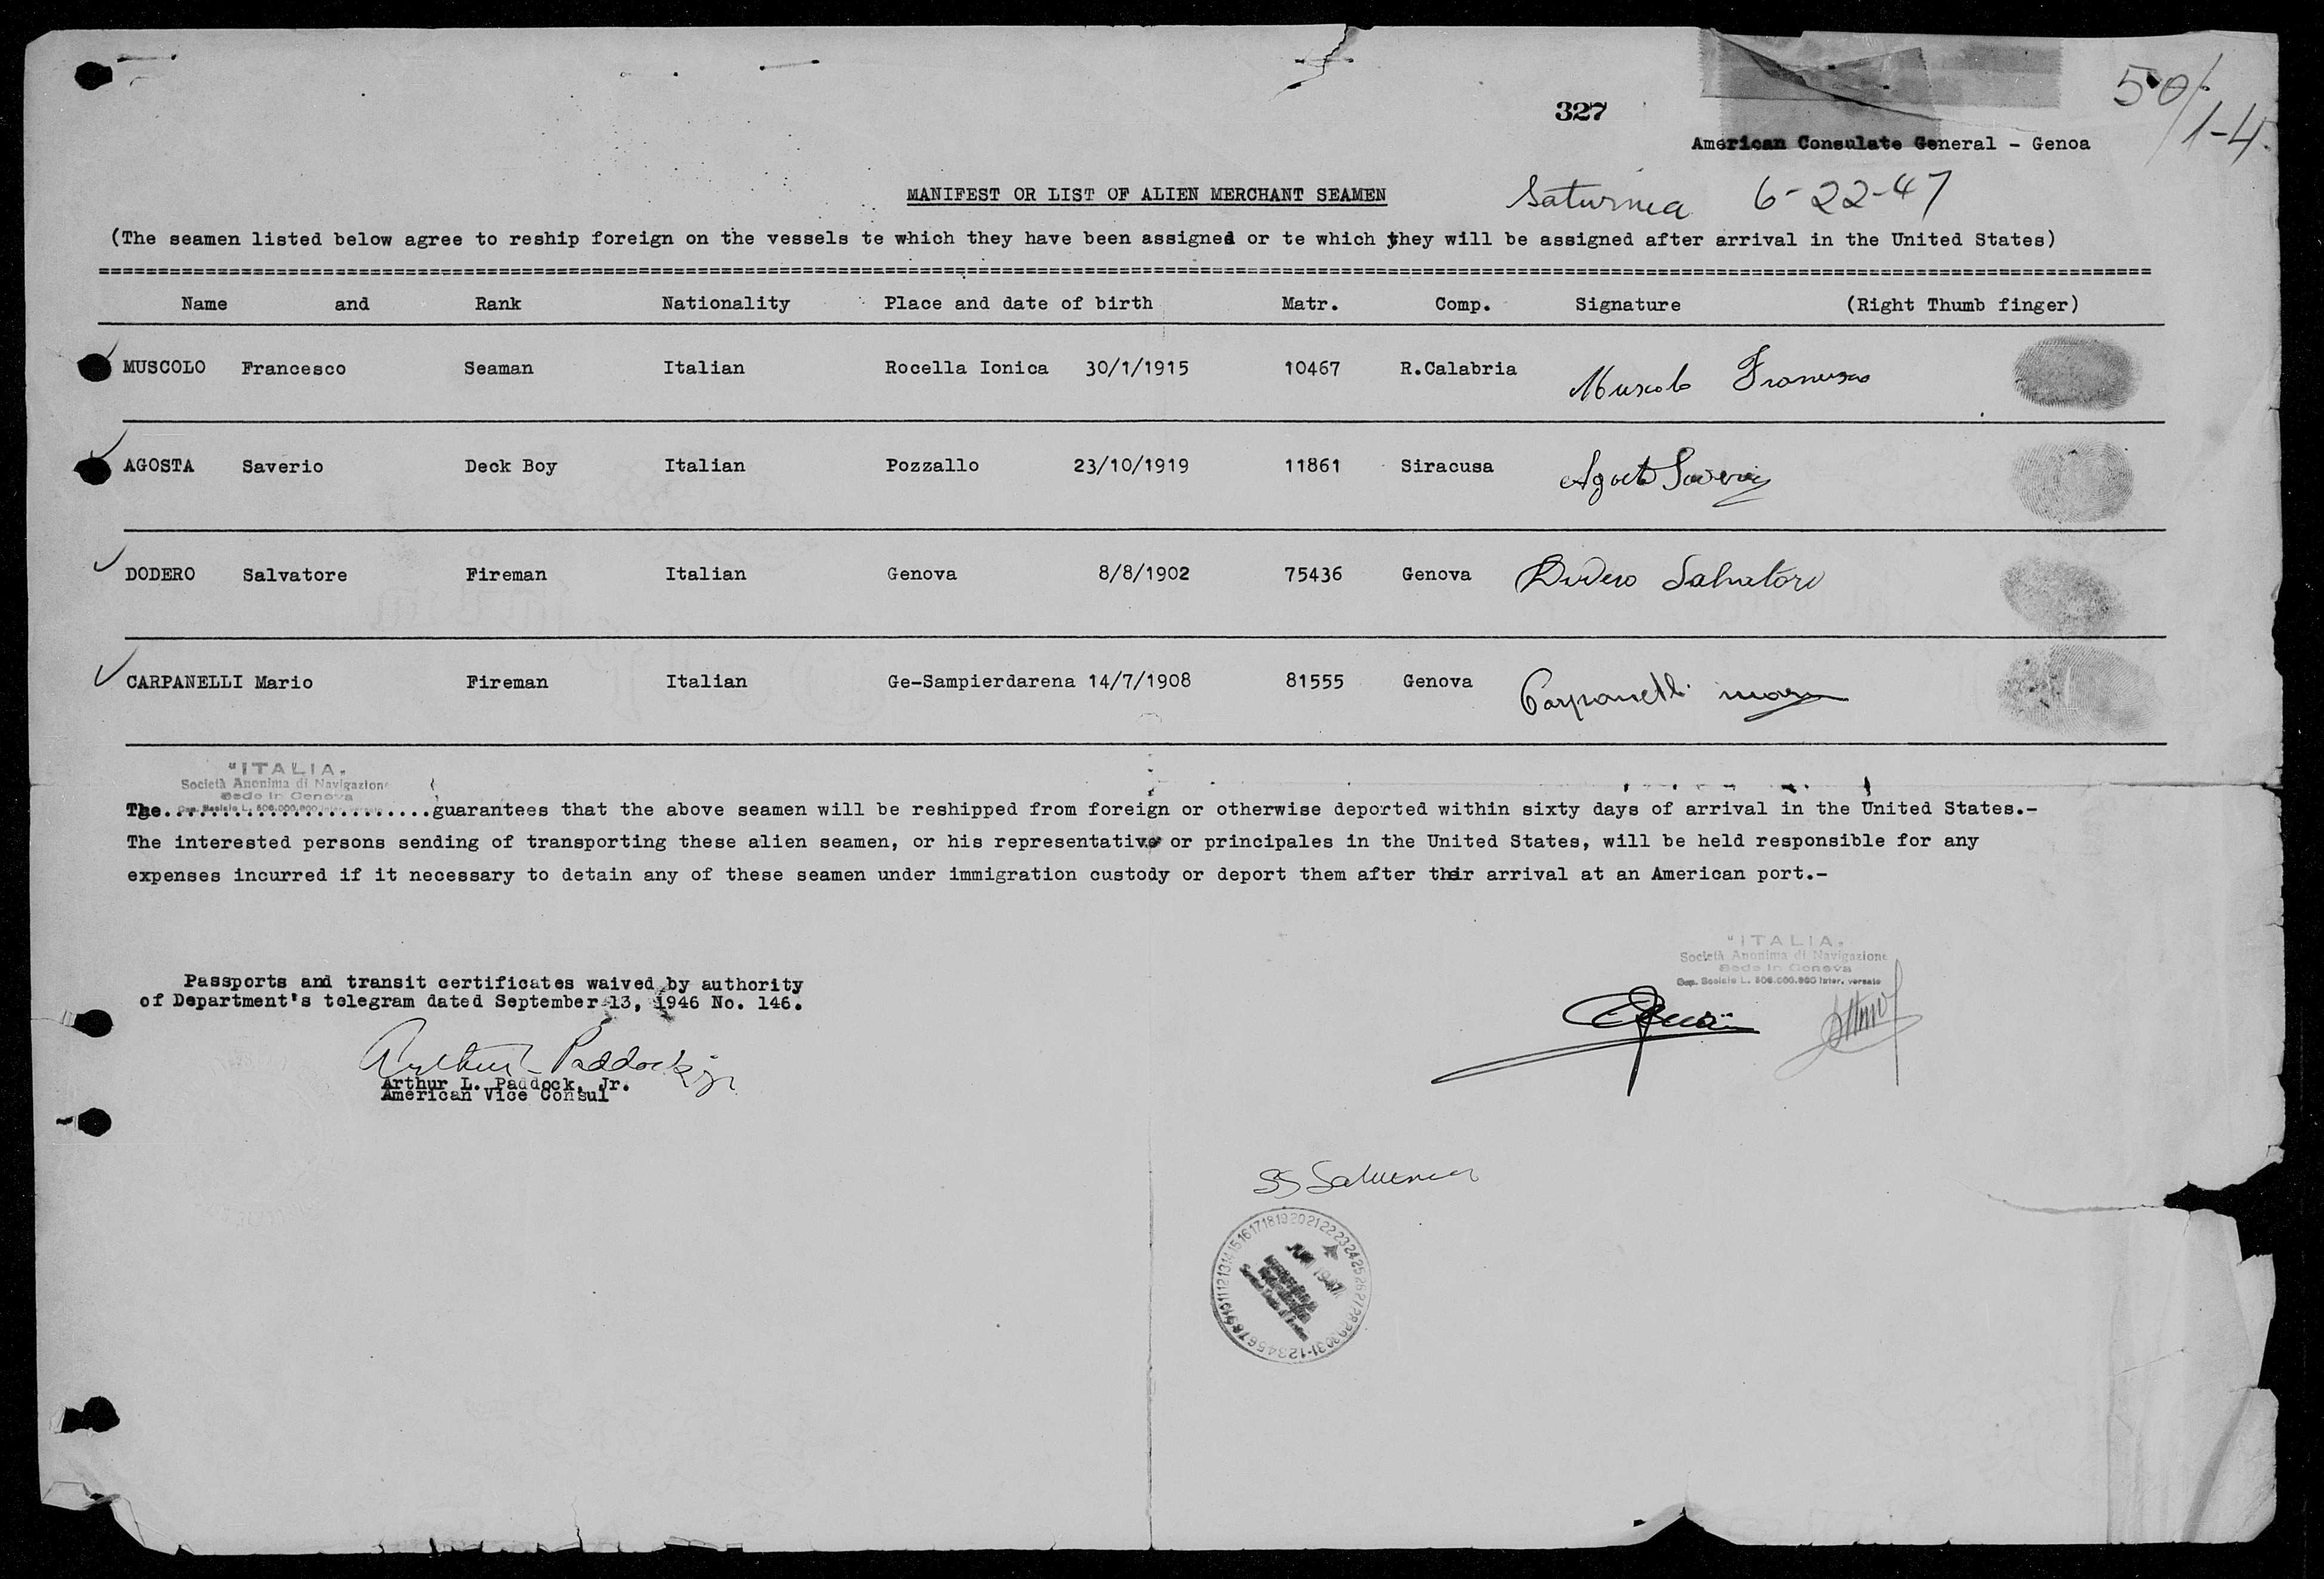 50/1-4
327
American Consulate General - Genoa
MANIFEST OR LIST OF ALIEN MERCHANT SEAMEN
Saturnia 6-22-47
(The seamen listed below agree to reship foreign on the vessels te which they have been assigned or te which they will be assigned after arrival in the United States)
Name and Rank Nationality Place and date of birth Matr. Comp. Signature (Right Thumb finger)
MUSCOLO Francesco Seaman Italian Rocella Ionica 30/1/1915 10467 R.Calabria Muscolo Francesco
AGOSTA Saverio Deck Boy Italian Pozzallo 23/10/1919 11861 Siracusa Agosta Saverio
DODERO Salvatore Fireman Italian Genova 8/8/1902 75436 Genova Dodero Salvatore
CARPANELLI Mario Fireman Italian Ge-Sampierdarena 14/7/1908 81555 Genova Carpanelli Mario
"ITALIA"
Società Anonima di Navigazione
Sede in Genova
Cap. Sociale L. 500.000.000 inter. versato
The.........................guarantees that the above seamen will be reshipped from foreign or otherwise deported within sixty days of arrival in the United States.-
The interested persons sending of transporting these alien seamen, or his representative or principales in the United States, will be held responsible for any
expenses incurred if it necessary to detain any of these seamen under immigration custody or deport them after their arrival at an American port.-
"ITALIA"
Società Anonima di Navigazione
Sede in Genova
Cap. Sociale L. 500.000.000 inter. versato
Passports and transit certificates waived by authority
of Department's telegram dated September 13, 1946 No. 146.
Arthur L Paddock jr
Arthur L. Paddock, Jr.
American Vice Consul
SS Saturnia
1 2 3 4 5 6 7 8 9 10 11 12 13 14 15 16 17 18 19 20 21 22 23 24 25 26 27 28 29 30 31
JUN 1947